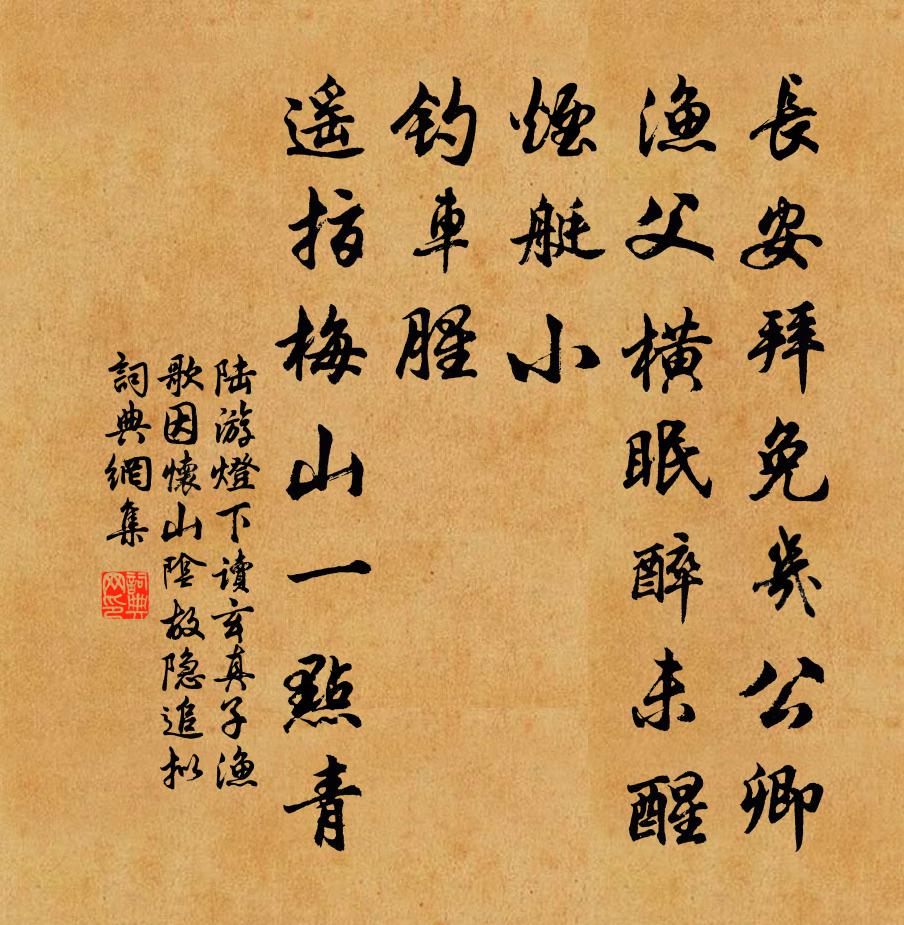 長安拜免幾公卿
漁父橫眠醉未醒
煙艇小
釣車腥
遥指梅山一點青
陆游燈下讀玄真子漁
歌因懷山陰故隐追拟
詞典網集
詞典网印